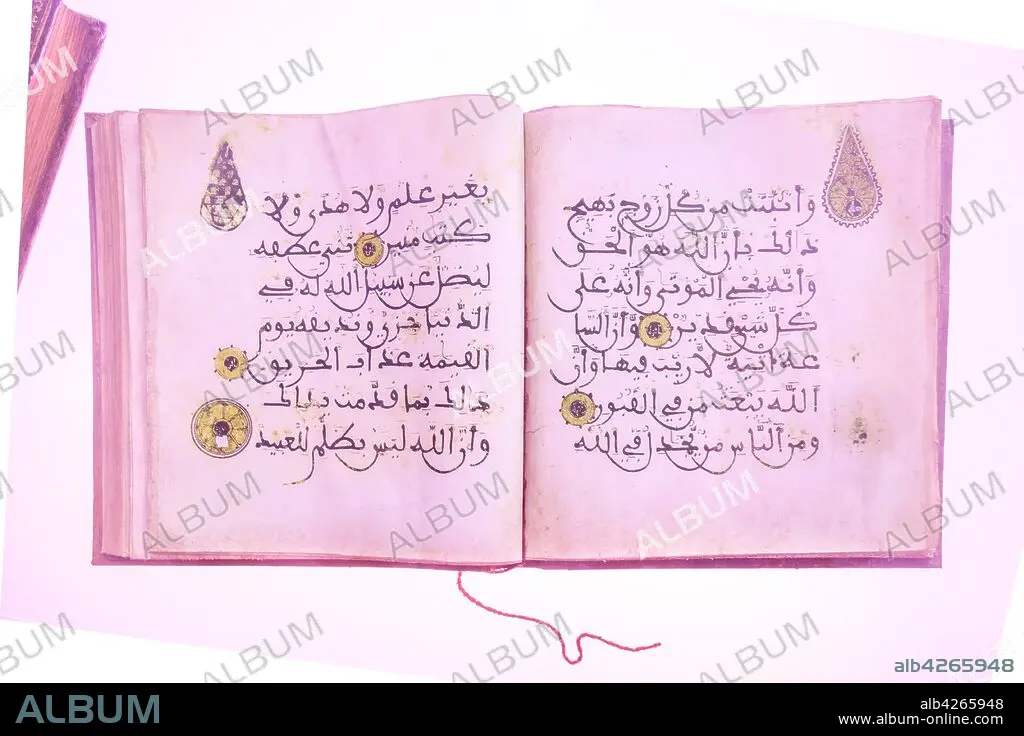 وأنبتت من كل زوج بهيج
ذلك بأن الله هو الحق
وأنه يحي الموتى وأنه على
كل شيء قدير وأن السا
عة آتية لا ريب فيها وأن
الله يبعث من في القبور
ومن الناس من يجدل في الله
بغير علم ولا هدى ولا
كتب منير ثني عطفه
ليضل عن سبيل الله له في
الدنيا خزي ونذيقه يوم
القيمة عذاب الحريق
ذلك بما قدمت يداك
وأن الله ليس بظلم للعبيد
ALBUM
alb4265948
ALBUM
alb4265948
www.album-online.com